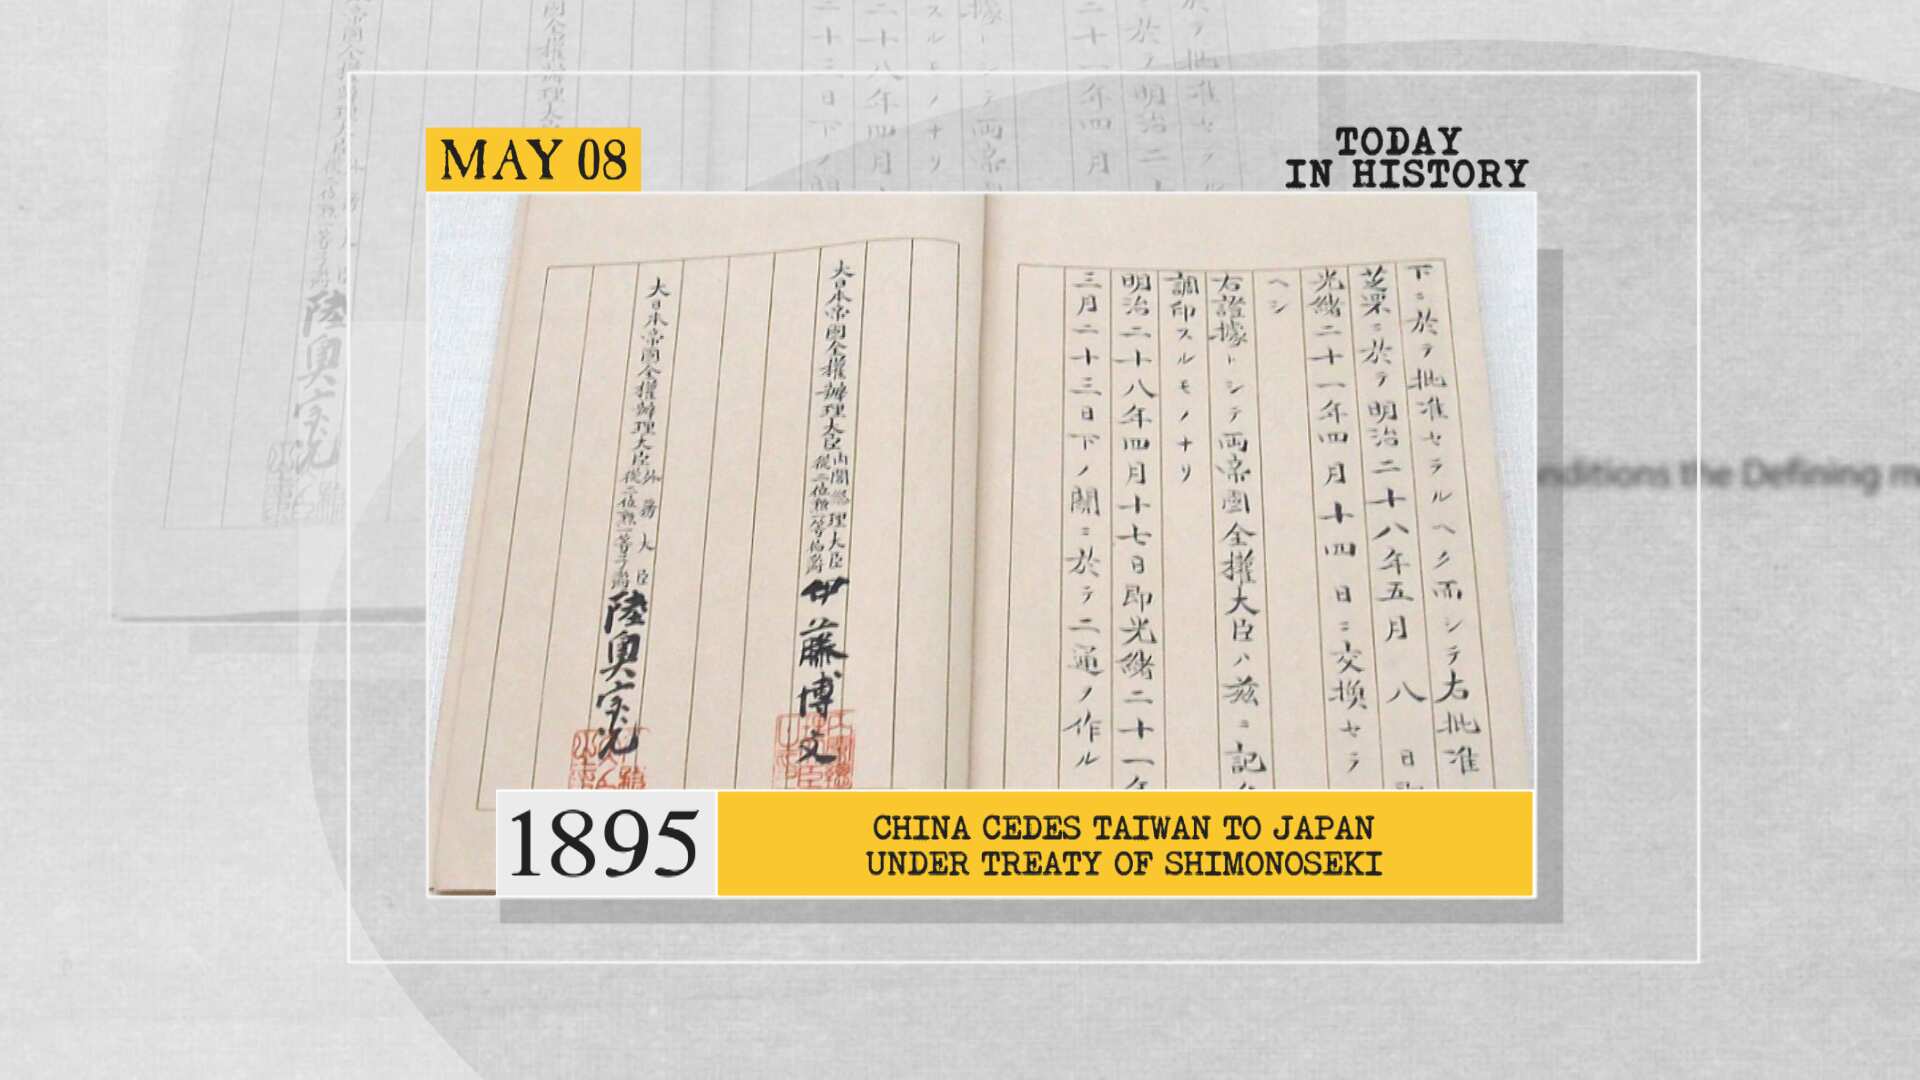 MAY 08
TODAY
IN HISTORY
下ニ於テ批准セラルヘク而シテ右批准
芝罘ニ於テ明治二十八年五月八日
光緒二十一年四月十四日ニ交換セラ
ヘシ
右證據トシテ両帝國全權大臣ハ茲ニ記
調印スルモノナリ
明治二十八年四月十七日即光緒二十一年
三月二十三日下ノ關ニ於テ二通ヲ作ル
大日本帝國全權辦理大臣内閣總理大臣從二位勲一等伯爵伊藤博文
大日本帝國全權辦理大臣外務大臣從二位勲一等子爵陸奥宗光
nditions the Defining m
1895
CHINA CEDES TAIWAN TO JAPAN
UNDER TREATY OF SHIMONOSEKI